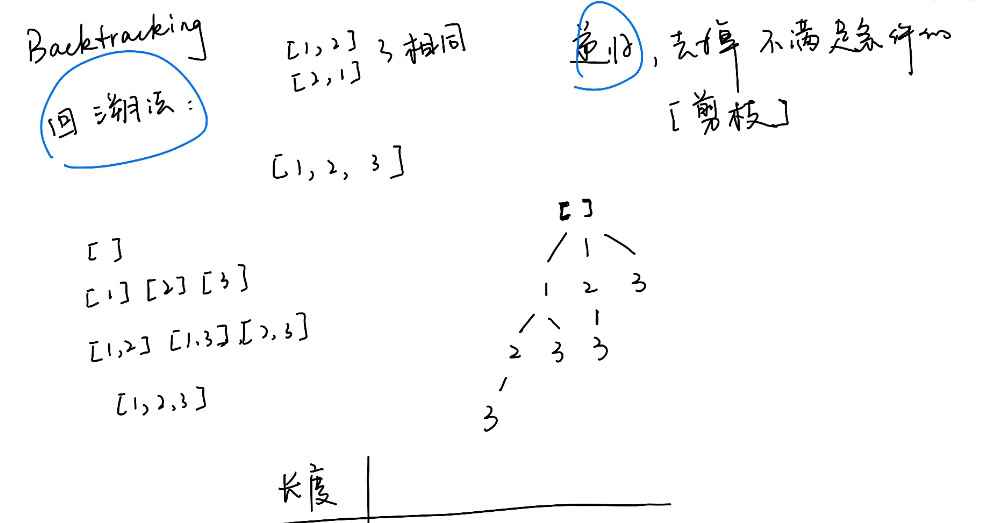 Backtracking
回溯法:
[1,2] } 相同
[2,1]
递归, 去掉 不满足条件的
[剪枝]
[1, 2, 3]
[ ]
[1] [2] [3]
[1,2] [1,3] [2,3]
[1,2,3]
[ ]
1 2 3
2 3 3
3
长度